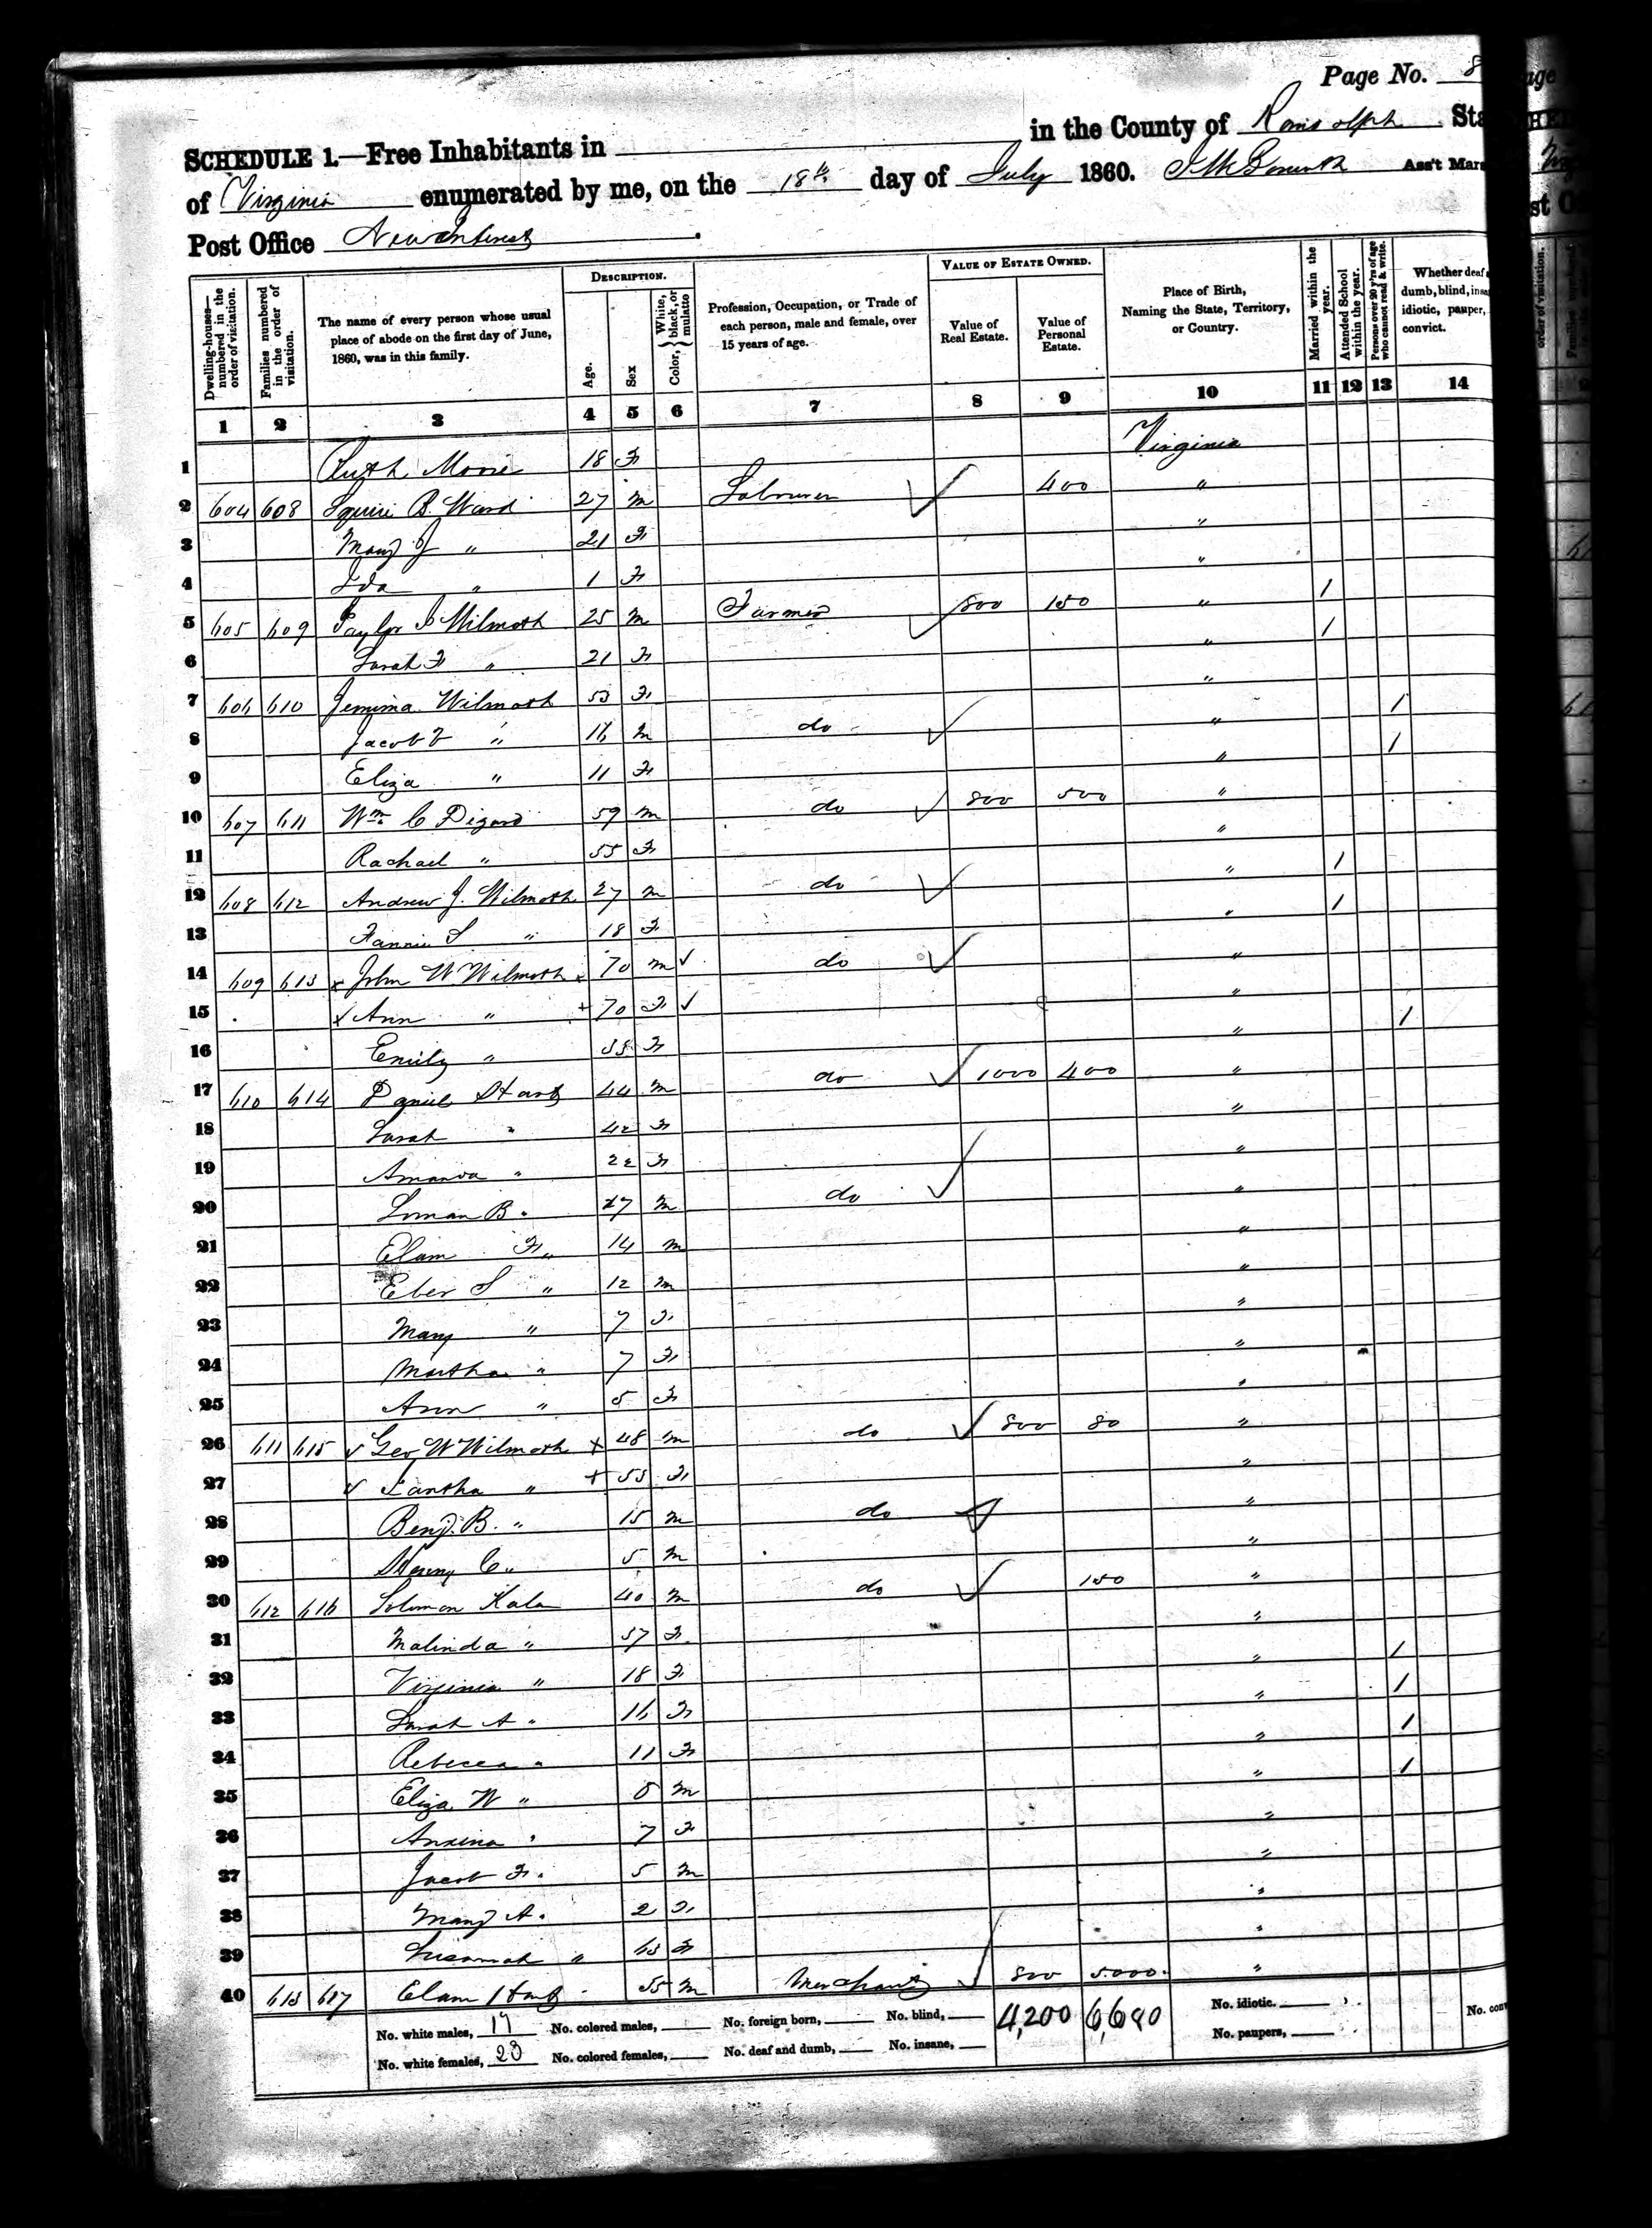 Page No. 8
SCHEDULE 1.—Free Inhabitants in in the County of Randolph Sta
of Virginia enumerated by me, on the 18th day of July 1860. Ass't Mars
Post Office New Interest
DESCRIPTION. VALUE OF ESTATE OWNED.
Dwelling-houses—numbered in the order of visitation. Families numbered in the order of visitation. The name of every person whose usual place of abode on the first day of June, 1860, was in this family. Age. Sex Color, {White, black, or mulatto Profession, Occupation, or Trade of each person, male and female, over 15 years of age. Value of Real Estate. Value of Personal Estate. Place of Birth, Naming the State, Territory, or Country. Married within the year. Attended School within the year. Persons over 20 y'rs of age who cannot read & write. Whether deaf a dumb, blind, insa idiotic, pauper, convict.
1 2 3 4 5 6 7 8 9 10 11 12 13 14
1 Ruth Moore 18 F Virginia
2 604 608 Squire B. Ward 27 m Labourer ✓ 400 "
3 Mary J " 21 F "
4 Ida " 1 F "
5 605 609 Taylor Wilmoth 25 m Farmer ✓ 800 150 " 1
6 Sarah F " 21 F " 1
7 606 610 Jemima Wilmoth 53 F " 1
8 Jacob " 16 m do ✓ " 1
9 Eliza " 11 F "
10 607 611 Wm. C 59 m do ✓ 800 500 "
11 Rachael " 55 F " 1
12 608 612 Andrew J. Wilmoth 27 m do ✓ " 1
13 Fannie S " 18 F "
14 609 613 x John W Wilmoth x 70 m ✓ do ✓ "
15 x Ann " + 70 F ✓ " 1
16 Emily " 35 F "
17 610 614 Daniel Hart 44 m do ✓ 1000 400 "
18 Sarah " 42 F "
19 Amanda " 22 F "
20 B. " m do ✓ "
21 Elam F " 14 m "
22 Eber S " 12 m "
23 Mary " 7 F "
24 Martha " 7 F "
25 Ann " 5 F "
26 611 615 ✓ Geo W Wilmoth x 48 m do ✓ 800 80 "
27 ✓ " + 53 F "
28 Benj. B. " 15 m do ✓ "
29 Henry C " 5 m "
30 612 616 Solomon 40 m do ✓ 150 "
31 Malinda " 37 F " 1
32 Virginia " 18 F " 1
33 Sarah A " 16 F " 1
34 Rebecca " 11 F " 1
35 Eliza W " m "
36 " 7 F "
37 Jacob F. " 5 m "
38 Mary A. " 2 F "
39 Susannah " 63 F "
40 613 617 Elam Hart 55 m Merchant ✓ 800 5000 "
No. white males, 17 No. colored males, No. foreign born, No. blind, 4,200 6,680 No. idiotic. No. con
No. white females, 23 No. colored females, No. deaf and dumb, No. insane, No. paupers,